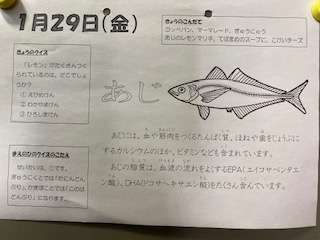 1月29日(金)
きょうのこんだて
コッペパン、マーマレード、ぎゅうにゅう
あじのレモンマリネ、てばもとのスープに、こがいチーズ
きょうのクイズ
「レモン」がたくさんつく
られているのは、どこでしょ
うか?
① えひめけん
② わかやまけん
③ ひろしまけん
あじ
あじには、血や筋肉をつくるたんぱく質、ほねや歯をじょうぶに
するカルシウムのほか、ビタミンなども含まれています。
あじの脂質は、血液の流れをよくするEPA(エイコサペンタエ
ン酸)、DHA(ドコサヘキサエン酸)をたくさん含んでいます。
まえのひのクイズのこたえ
せいかいは、②です。